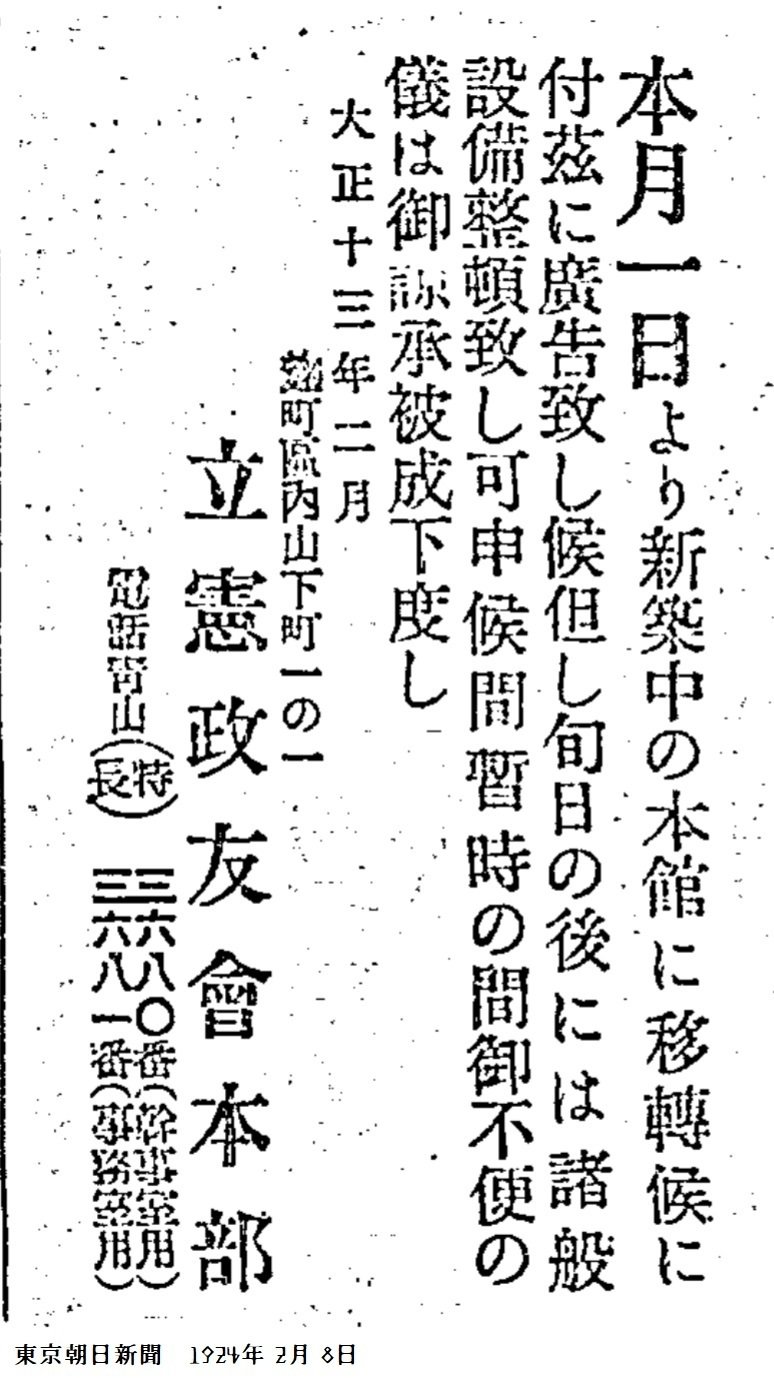 本月一日より新築中の本館に移轉候に
付茲に廣告致し候但し旬日の後には諸般
設備整頓致し可申候間暫時の間御不便の
儀は御諒承被成下度し
大正十三年二月
麹町區內山下町一の一
立憲政友會本部
電話靑山(特長)
三六八〇番(幹事室用)
三六八一番(事務室用)
東京朝日新聞 1924年 2月 8日